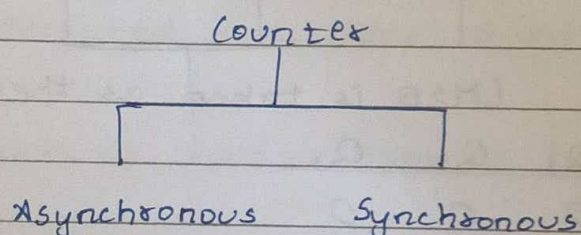 Counter
Asynchronous Synchronous